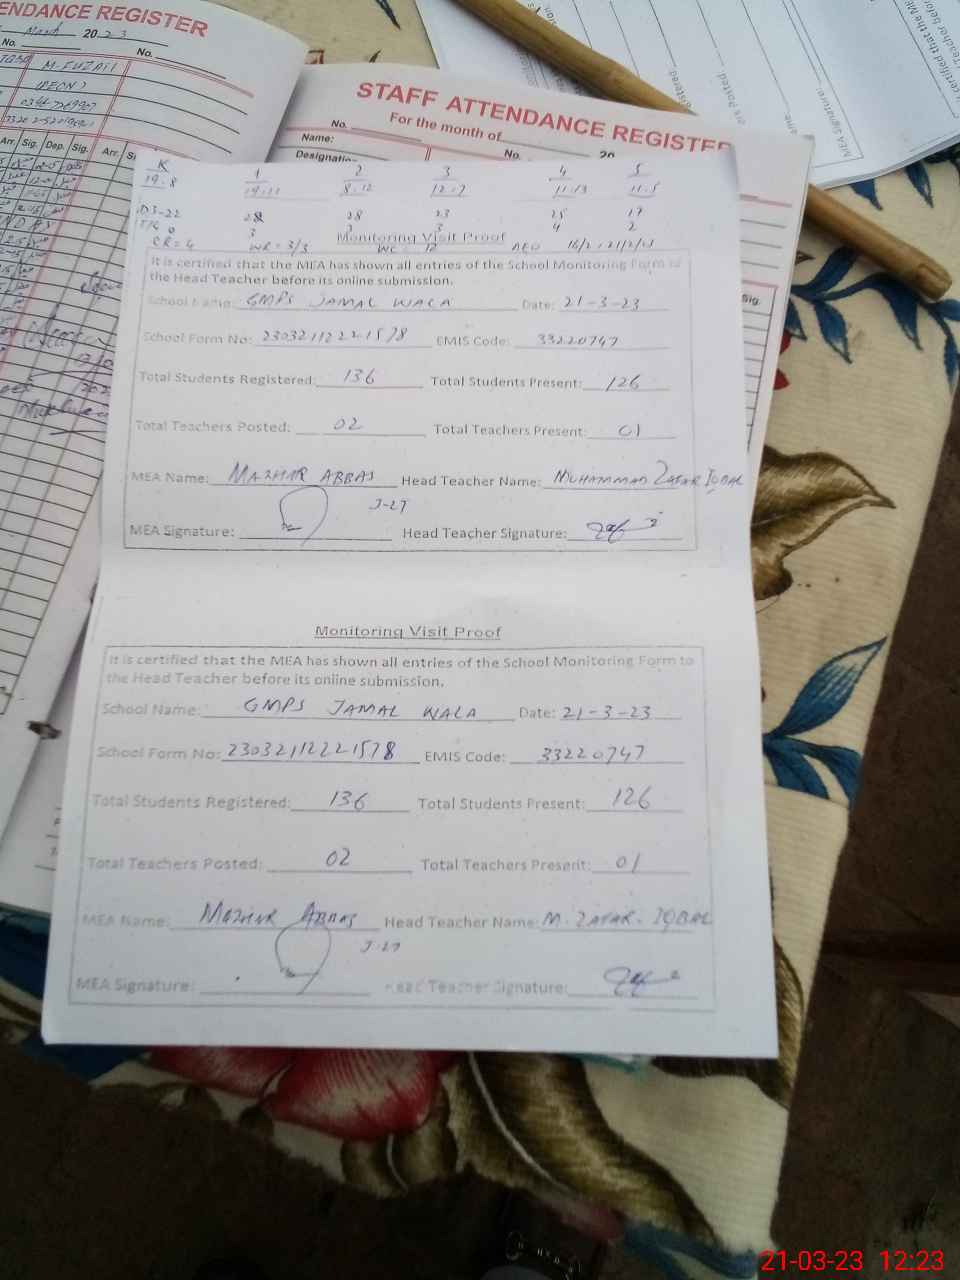 ENDANCE REGISTER
March 2023
No. No.
M. FUZAIL
(PEON)
Arr. Sig. Dep. Sig. Arr.
STAFF ATTENDANCE REGISTER
For the month of 20
No. No.
Name:
Designation
Sig.
K 1 2 3 4 5
19.8 19.11 8.12 12.7 11.13 11.5
28 23 25 17
3 3 4 2
CR = 4 WR = 3/3 AEO
Monitoring Visit Proof
It is certified that the MEA has shown all entries of the School Monitoring Form to
the Head Teacher before its online submission.
School Name: GMPS JAMAL WALA Date: 21-3-23
School Form No: 23032112221578 EMIS Code: 33220747
Total Students Registered: 136 Total Students Present: 126
Total Teachers Posted: 02 Total Teachers Present: 01
MEA Name: MAZHAR ABBAS Head Teacher Name: MUHAMMAD ZAFAR IQBAL
J-27
MEA Signature: Head Teacher Signature:
Monitoring Visit Proof
It is certified that the MEA has shown all entries of the School Monitoring Form to
the Head Teacher before its online submission.
School Name: GMPS JAMAL WALA Date: 21-3-23
School Form No: 23032112221578 EMIS Code: 33220747
Total Students Registered: 136 Total Students Present: 126
Total Teachers Posted: 02 Total Teachers Present: 01
MEA Name: MAZHAR ABBAS Head Teacher Name: M. ZAFAR. IQBAL
J-27
MEA Signature: Head Teacher Signature:
21-03-23 12:23